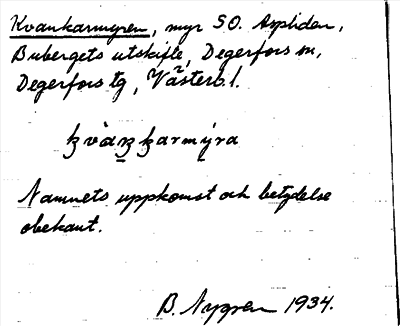 Kvarnkarmyren, myr S.O. Aspliden,
Bubergets utskifte, Degerfors sn,
Degerfors tg, Västerb. l.
Namnets uppkomst och betydelse
obekant.
B. Nygren 1934.